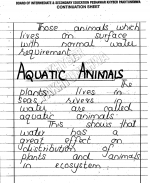 BOARD OF INTERMEDIATE & SECONDARY EDUCATION PESHAWAR KHYBER PAKHTUNKHWA
CONTINUATION SHEET
Those animals which
lives on surface
with normal water
requirement.
AQUATIC ANIMALS
The
plants lives in
seas, rivers in
water are called
aquatic animals.
This shows that
water has a
great effect on
distribution of
plants and animals
in ecosystem.